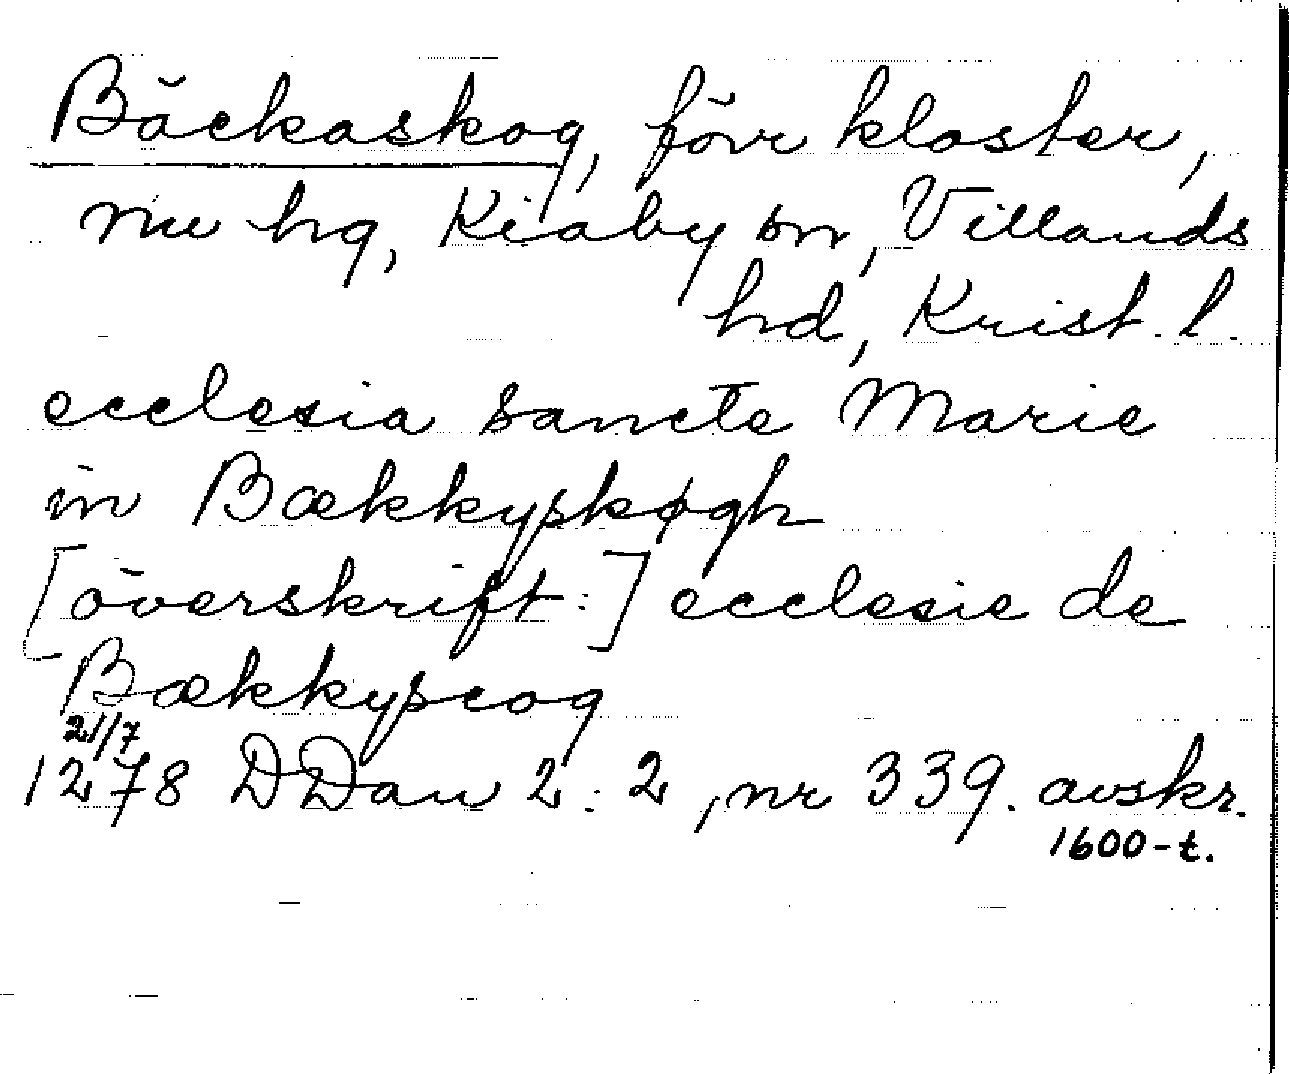 Bäckaskog, förr kloster,
nu hg, Kiaby sn, Villands
hd, Krist. l.
ecclesia sancte Marie
in Bækkyskøgh
[överskrift:] ecclesie de
Bækkyscog
21/7
1278 DDan 2:2, nr 339. avskr.
1600-t.